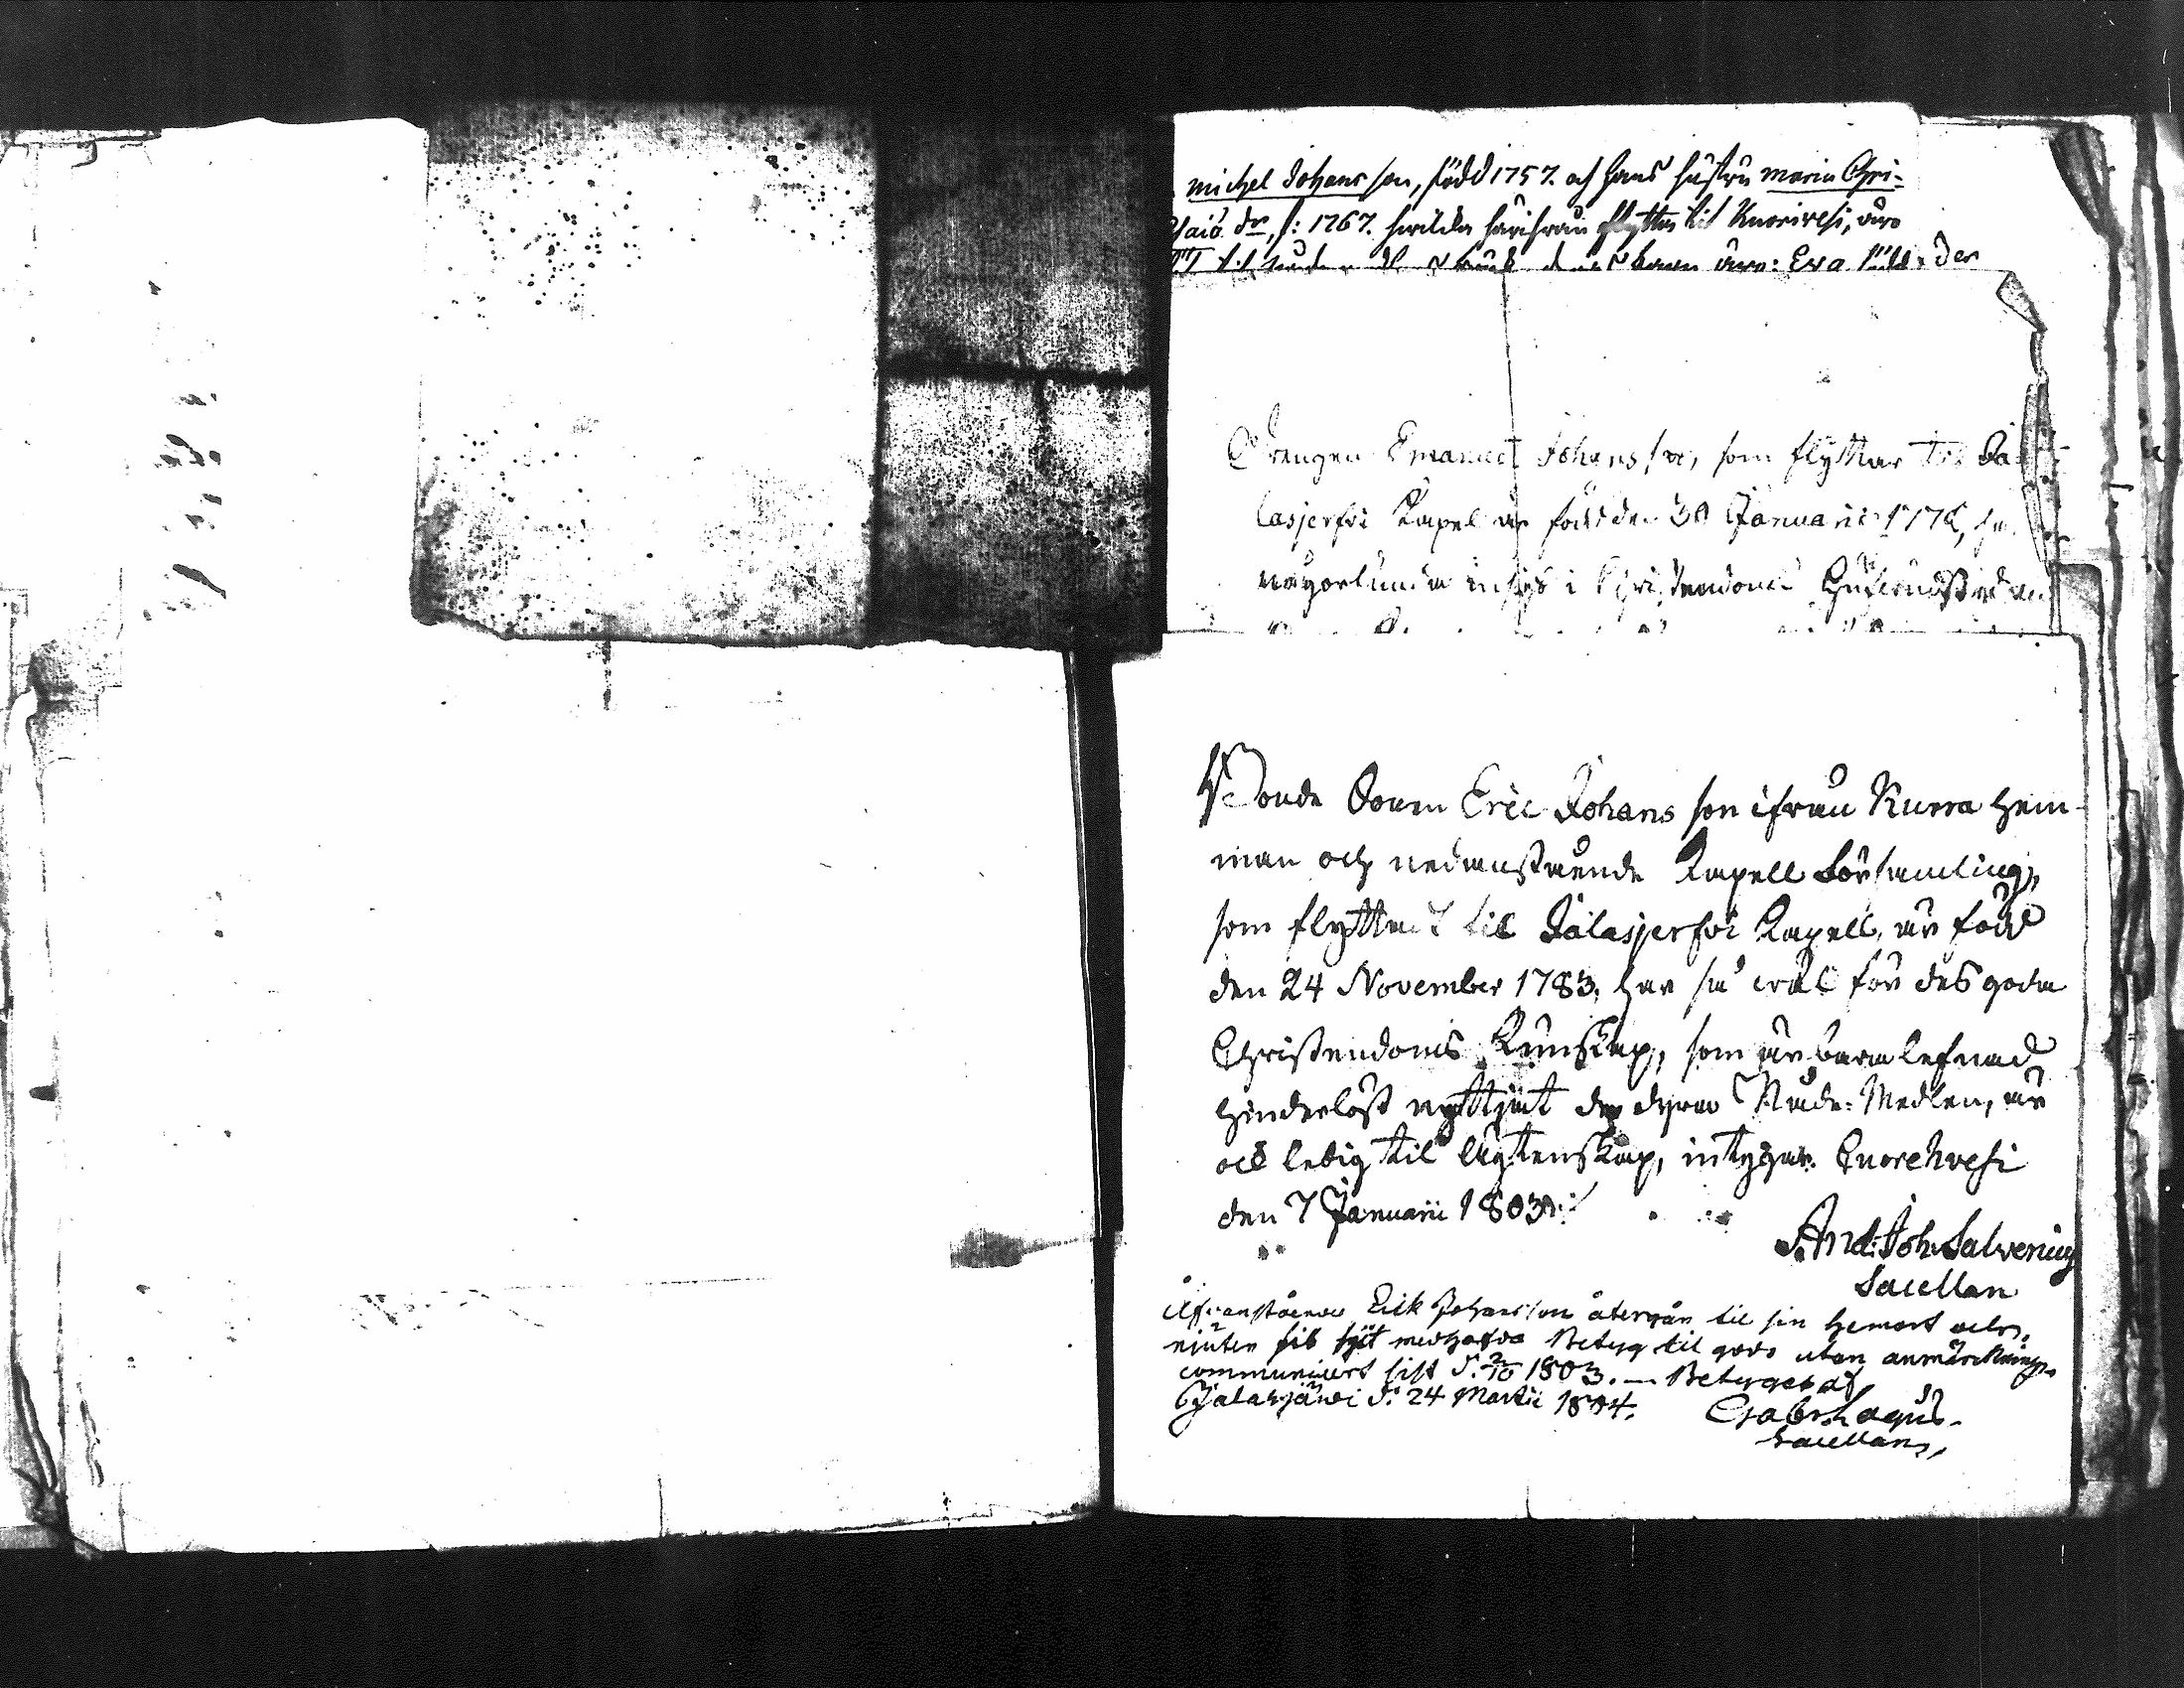 Michel Johansson, född 1757. och hans hustru Maria Chri-
d:r, f: 1767. hwilka härifrån flytta til Kuorivesi, äro
barn äro: Eva född den
Drängen Emanuel Johansson, som flyttar til Ja-
lasjerfvi Kapel är född den 30 Januarii 177
någorlunda insigt i Christendoms
Bonde Sonen Eric Johansson ifrån Kurra Hem-
man och nedanstående Kapell Församling,
som flyttadt til Jalasjerfvi Kapell, är född
den 24 November 1783, har så wäl för des goda
Christendoms Kunskap, som ärbara lefnad
hinderlöst nyttjat de dyra Nåde-Medlen, är
ock ledig til ägtenskap, intygar. Quorehvesi
den 7 Januarii 1803.
And: Joh: Salvenius
Sacellan
Ofvanstående Erik Johansson återgår til sin hemort och
niuter sit hit medhafda Betyg til godo utan anmärckning,
communicert sist d. 2/10 1803. — Betygas af
Jalasjärvi d: 24 Martii 1804. Gabr. Lagus.
Sacellan,